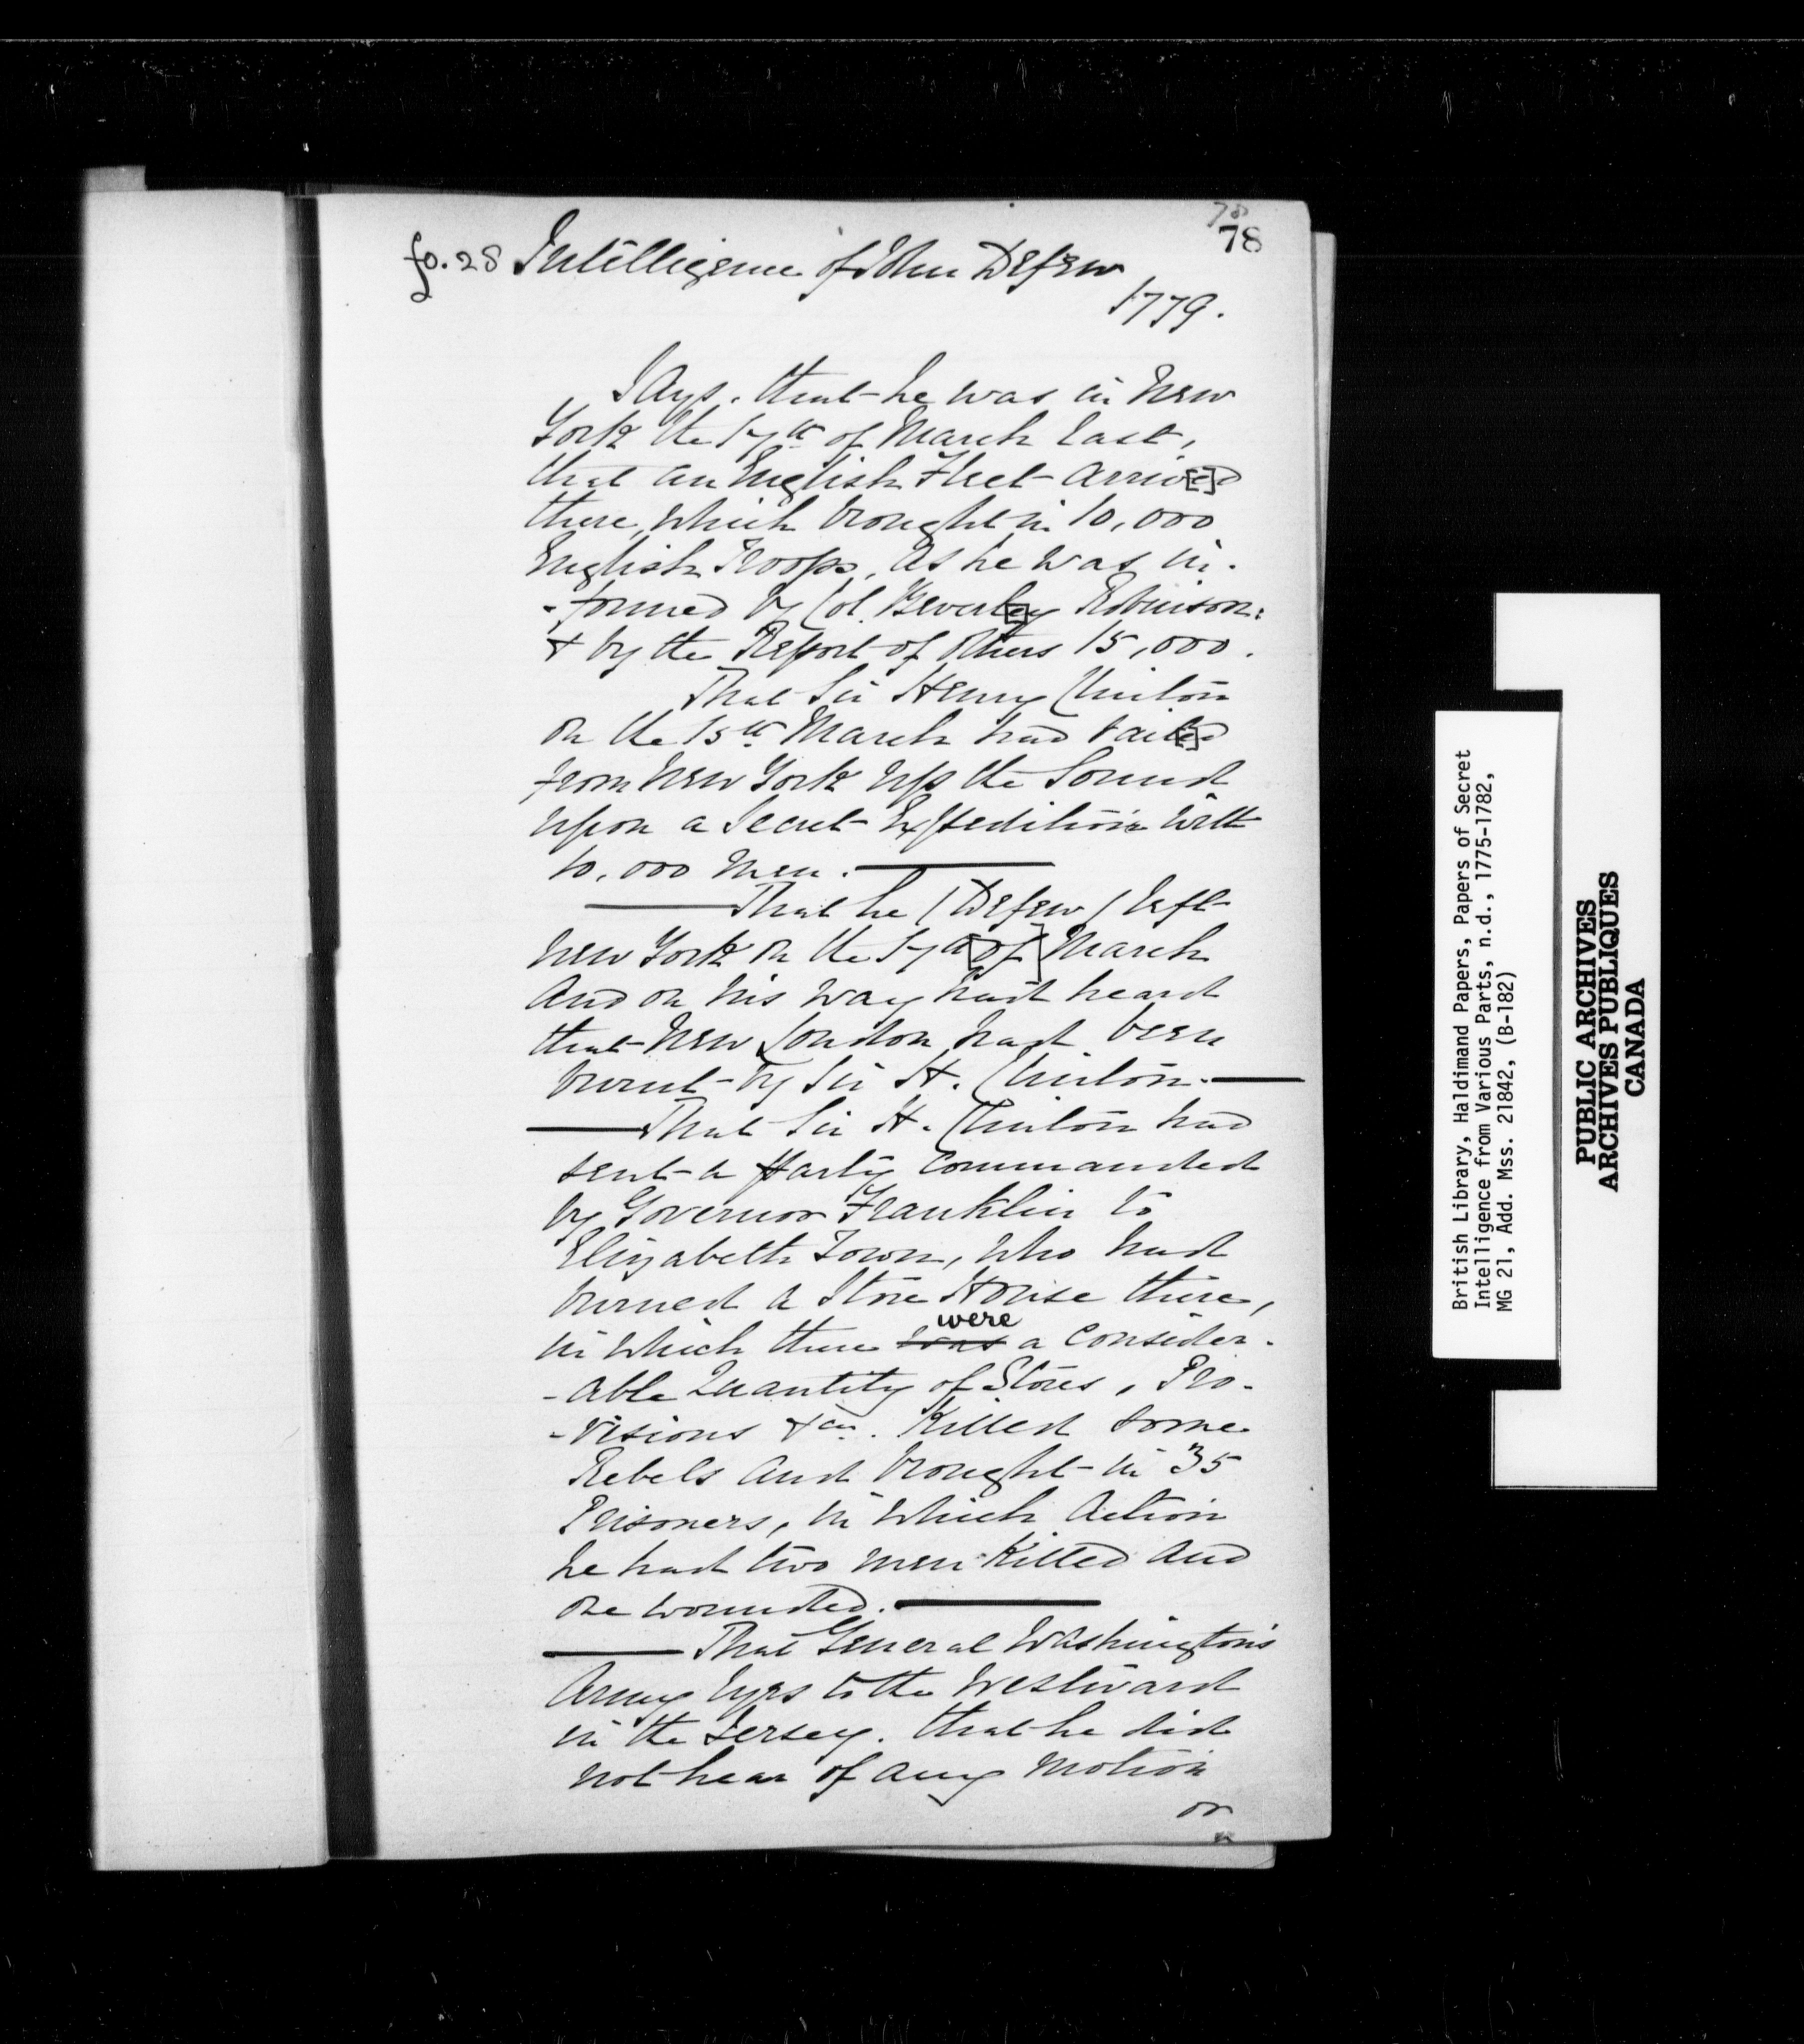 78
78
fo. 28 Intelligence of John Defew
1779.
Says, that he was in New
York the 17th of March last,
that an English Fleet arriv[e]d
there, which brought in 10,000
English Troops, as he was in-
-formed by Col. Beverl[e]y Robinson:
& by the Report of others 15,000.
That Sir Henry Clinton
on the 15th March had sail[e]d
from New York up the Sound
upon a Secret Expedition with
10,000 men.
That he (Defew) left
New York on the 17th [of] March
And on his way had heard
that New London had been
burnt by Sir H. Clinton.
That Sir H. Clinton had
sent a party commanded
by Governor Franklin to
Elizabeth Town, who had
burned a Store House there,
were
in which there was a consider-
-able Quantity of Stores, Pro-
-visions &ca. Killed some
Rebels and brought in 35
Prisoners, in which Action
he had two men Killed and
one wounded.
That General Washington's
Army lyes to the Westward
in the Jersey. that he did
not hear of any Motion
or
British Library, Haldimand Papers, Papers of Secret
Intelligence from Various Parts, n.d., 1775-1782,
MG 21, Add. Mss. 21842, (B-182)
PUBLIC ARCHIVES
ARCHIVES PUBLIQUES
CANADA